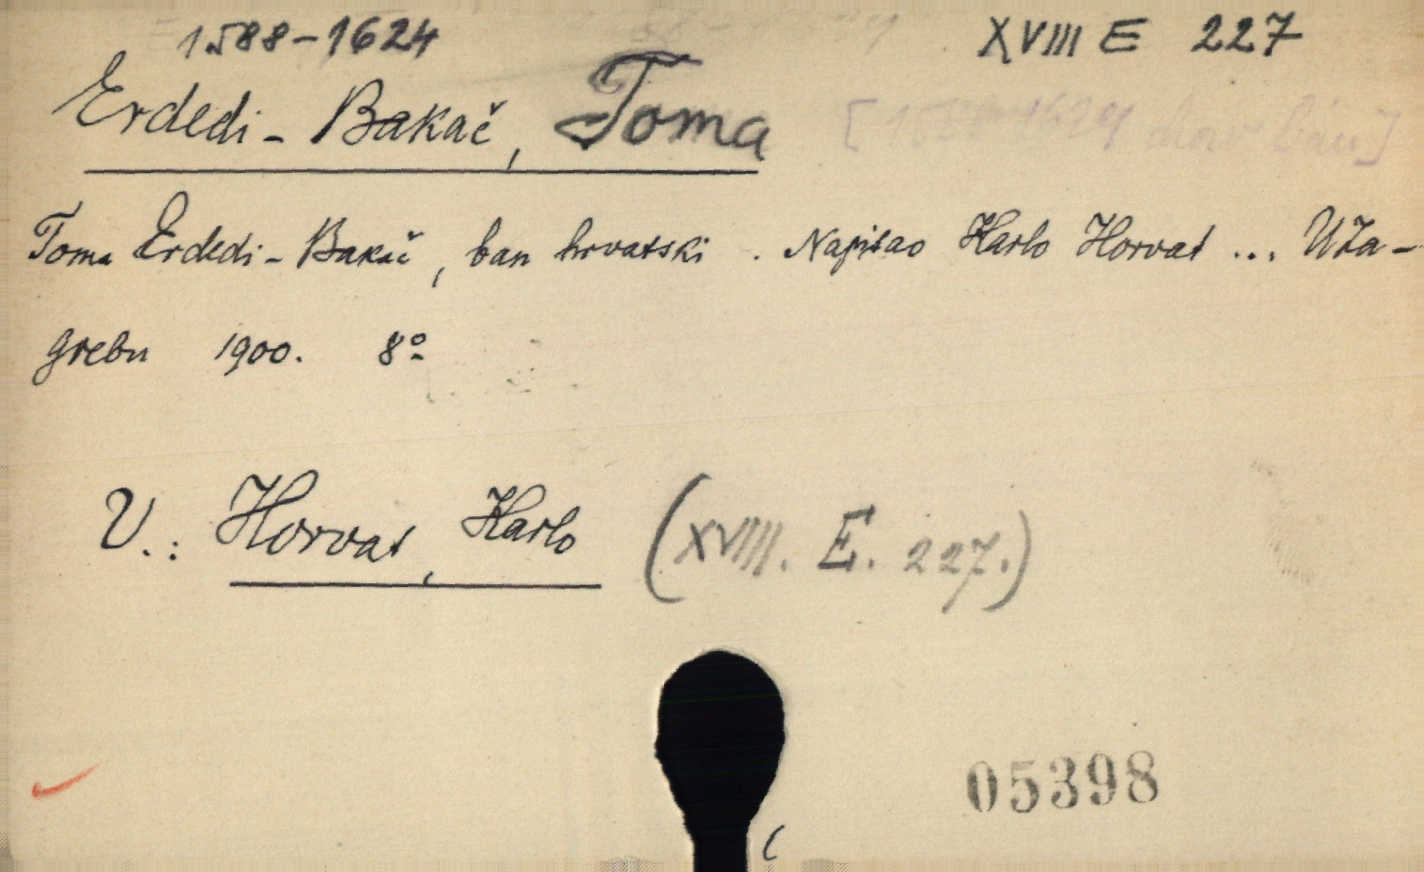 1588-1624 XVIII E 227
Erdedi-Bakač, Toma
Toma Erdedi-Bakač, ban hrvatski. Napisao Karlo Horvat ... U Za-
grebu 1900. 8º
V.: Horvat, Karlo (XVIII. E. 227.)
05398